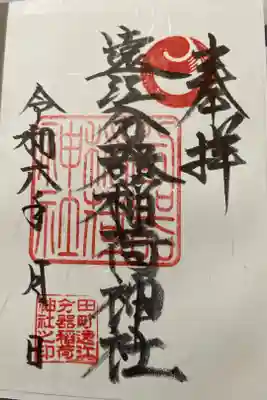 奉拝
遠江分器稲荷神社
令和六年 月 日
神社
田町遠江
分器稲荷
神社之印